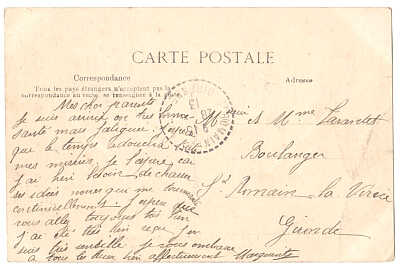 CARTE POSTALE
Correspondance
Tous les pays étrangers n'acceptent pas la
correspondance au recto, se renseigner à la
Adresse
Mes cher parents
Je suis arrivé en très bonne
santé mais fatiguée. J'espère
que le temps
mes J'espère car
j'ai bien besoin de chasser
ses idées noires que me tourmente
continuellement. J'espère que
vous allez toujours très bien
j'ai été très bien reçue j'en
suis très sensible. Je vous embrasse
à tous les deux bien affectueusement Marguerite
et Mme
Boulanger
St Romain la Virvée
Gironde